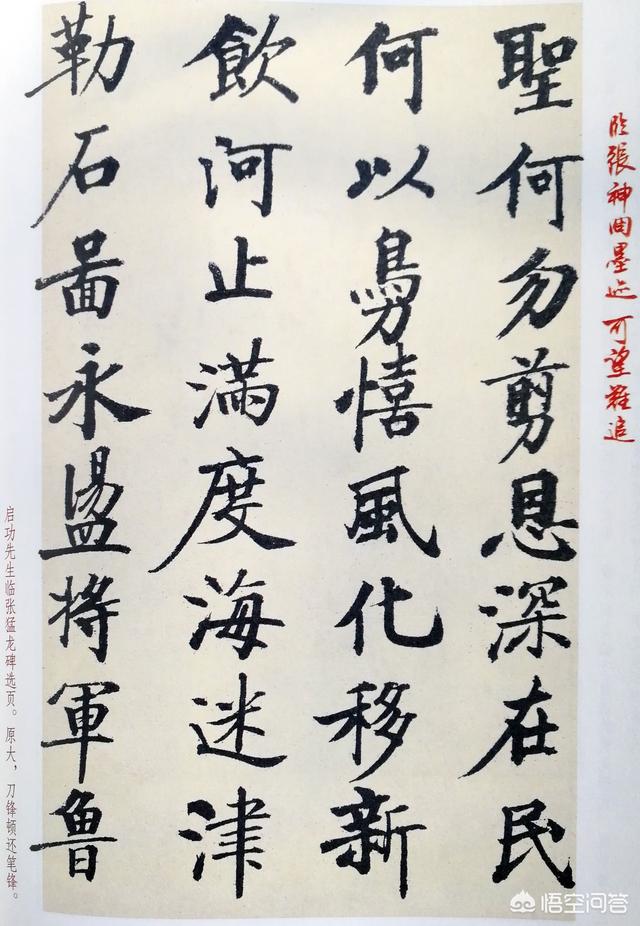 临張神冏墨迹 可望難追
聖何勿剪恩深在民
何以憘風化移新
飲河止滿度海迷津
勒石啚永盪將軍魯
启功先生临张猛龙碑选页。原大，刀锋顿还笔锋。
悟空问答